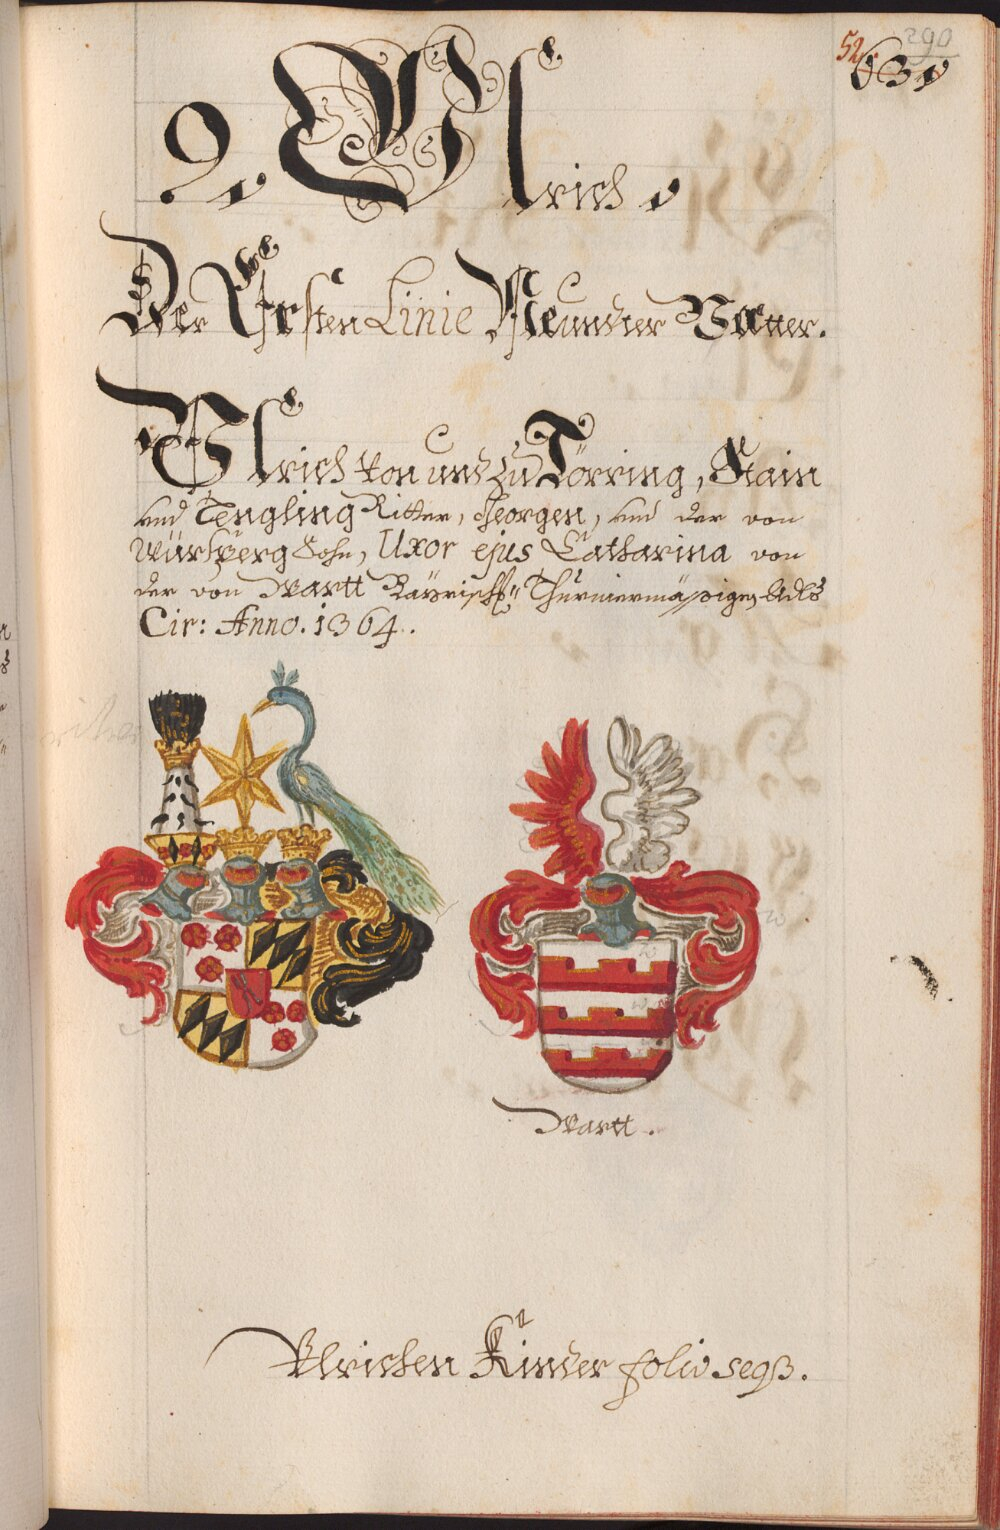 290
52. 63.
9. Ulrich.
Der Ersten Linie Neundter Vatter.
Ulrich von und zu Törring, Stain
und Tengling Ritter, Georgen, und der von
Würfberg Sohn, Uxor ejus Catharina von
der von Wartt Bayrisch Thurniermässigen Adls
Cir: Anno. 1364.
Wartt.
Ulrichen Kinder folio seqß.